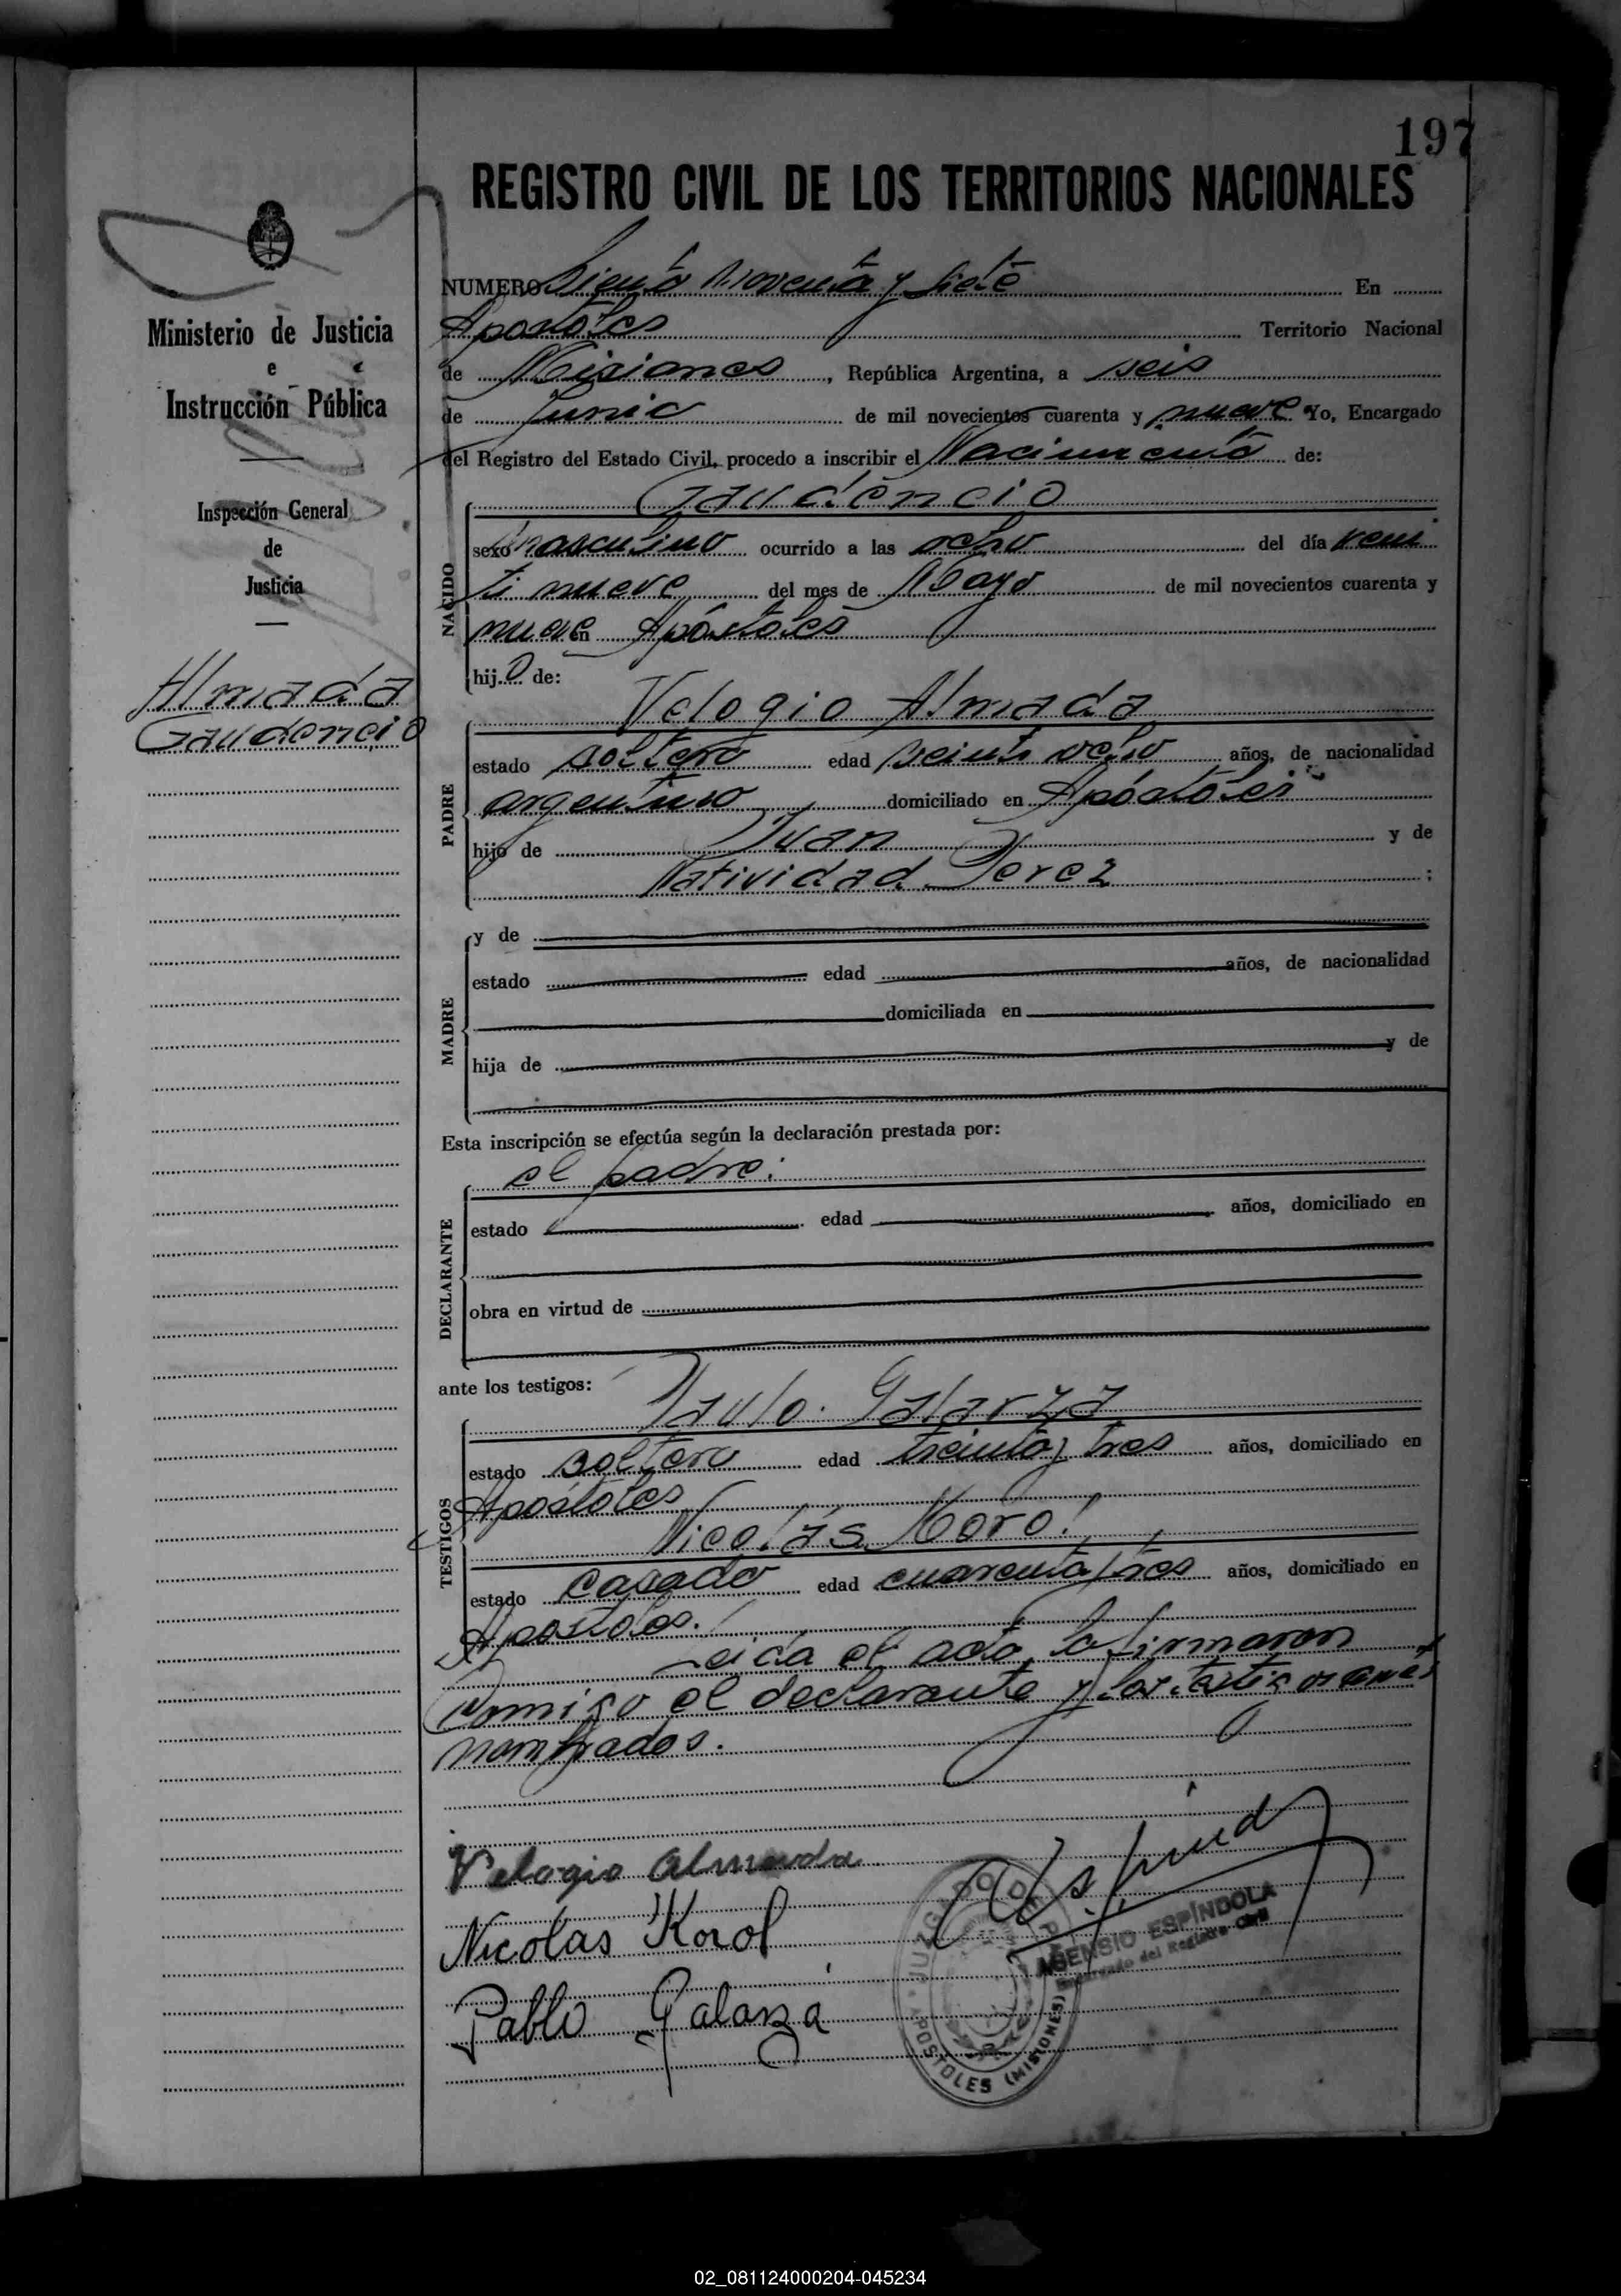 197
REGISTRO CIVIL DE LOS TERRITORIOS NACIONALES
Ministerio de Justicia
e
Instrucción Pública
Inspección General
de
Justicia
Almada
Gaudencio
NUMERO Siento Noventa y Siete En
Apostoles Territorio Nacional
de Misiones, República Argentina, a seis
de Junio de mil novecientos cuarenta y nueve Yo, Encargado
del Registro del Estado Civil, procedo a inscribir el Nacimiento de:
Gaudencio
NACIDO
sexo masculino ocurrido a las ocho del día veni
ti nueve del mes de Mayo de mil novecientos cuarenta y
nueve en Apóstoles
hij o de:
Velogio Almada
PADRE
estado soltero edad veinti ocho años, de nacionalidad
argentino domiciliado en Apóstoles
hijo de Juan y de
Natividad Perez ;
MADRE
y de
estado edad años, de nacionalidad
domiciliada en
hija de y de
Esta inscripción se efectúa según la declaración prestada por:
el padre:
DECLARANTE
estado edad años, domiciliado en
obra en virtud de
ante los testigos:
Paulo Galarza
TESTIGOS
estado soltero edad treinta y tres años, domiciliado en
Apóstoles
Nicolás Koro!
estado casado edad cuarenta y tres años, domiciliado en
Apostoles.
Leida el acta, la firmaron
conmigo el declarante y los testigos antes
nombrados.
Velogio Almada
Nicolas Korol
Pablo Galarza
Espindola
JUZGADO DE PAZ
APOSTOLES (MISIONES)
ASENSIO ESPÍNDOLA
Encargado del Registro Civil
02_081124000204-045234